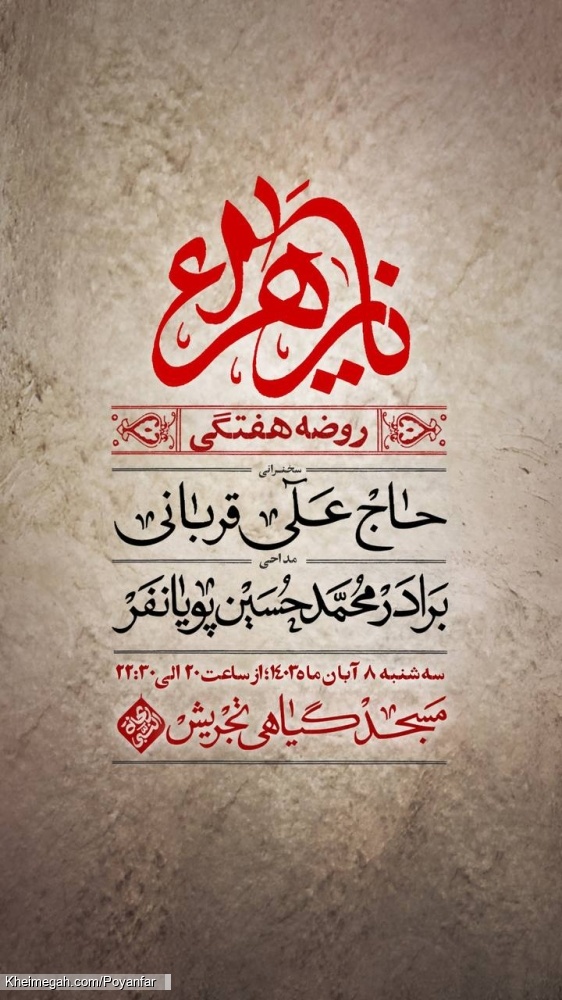 یا زهرا
روضه هفتگی
سخنرانی
حاج علی قربانی
مداحی
برادر محمدحسین پویانفر
سه شنبه ۸ آبان ماه ۱۴۰۳؛ از ساعت ۲۰ الی ۲۲:۳۰
مسجد گیاهی تجریش
ریحانة النبی
Kheimegah.com/Poyanfar